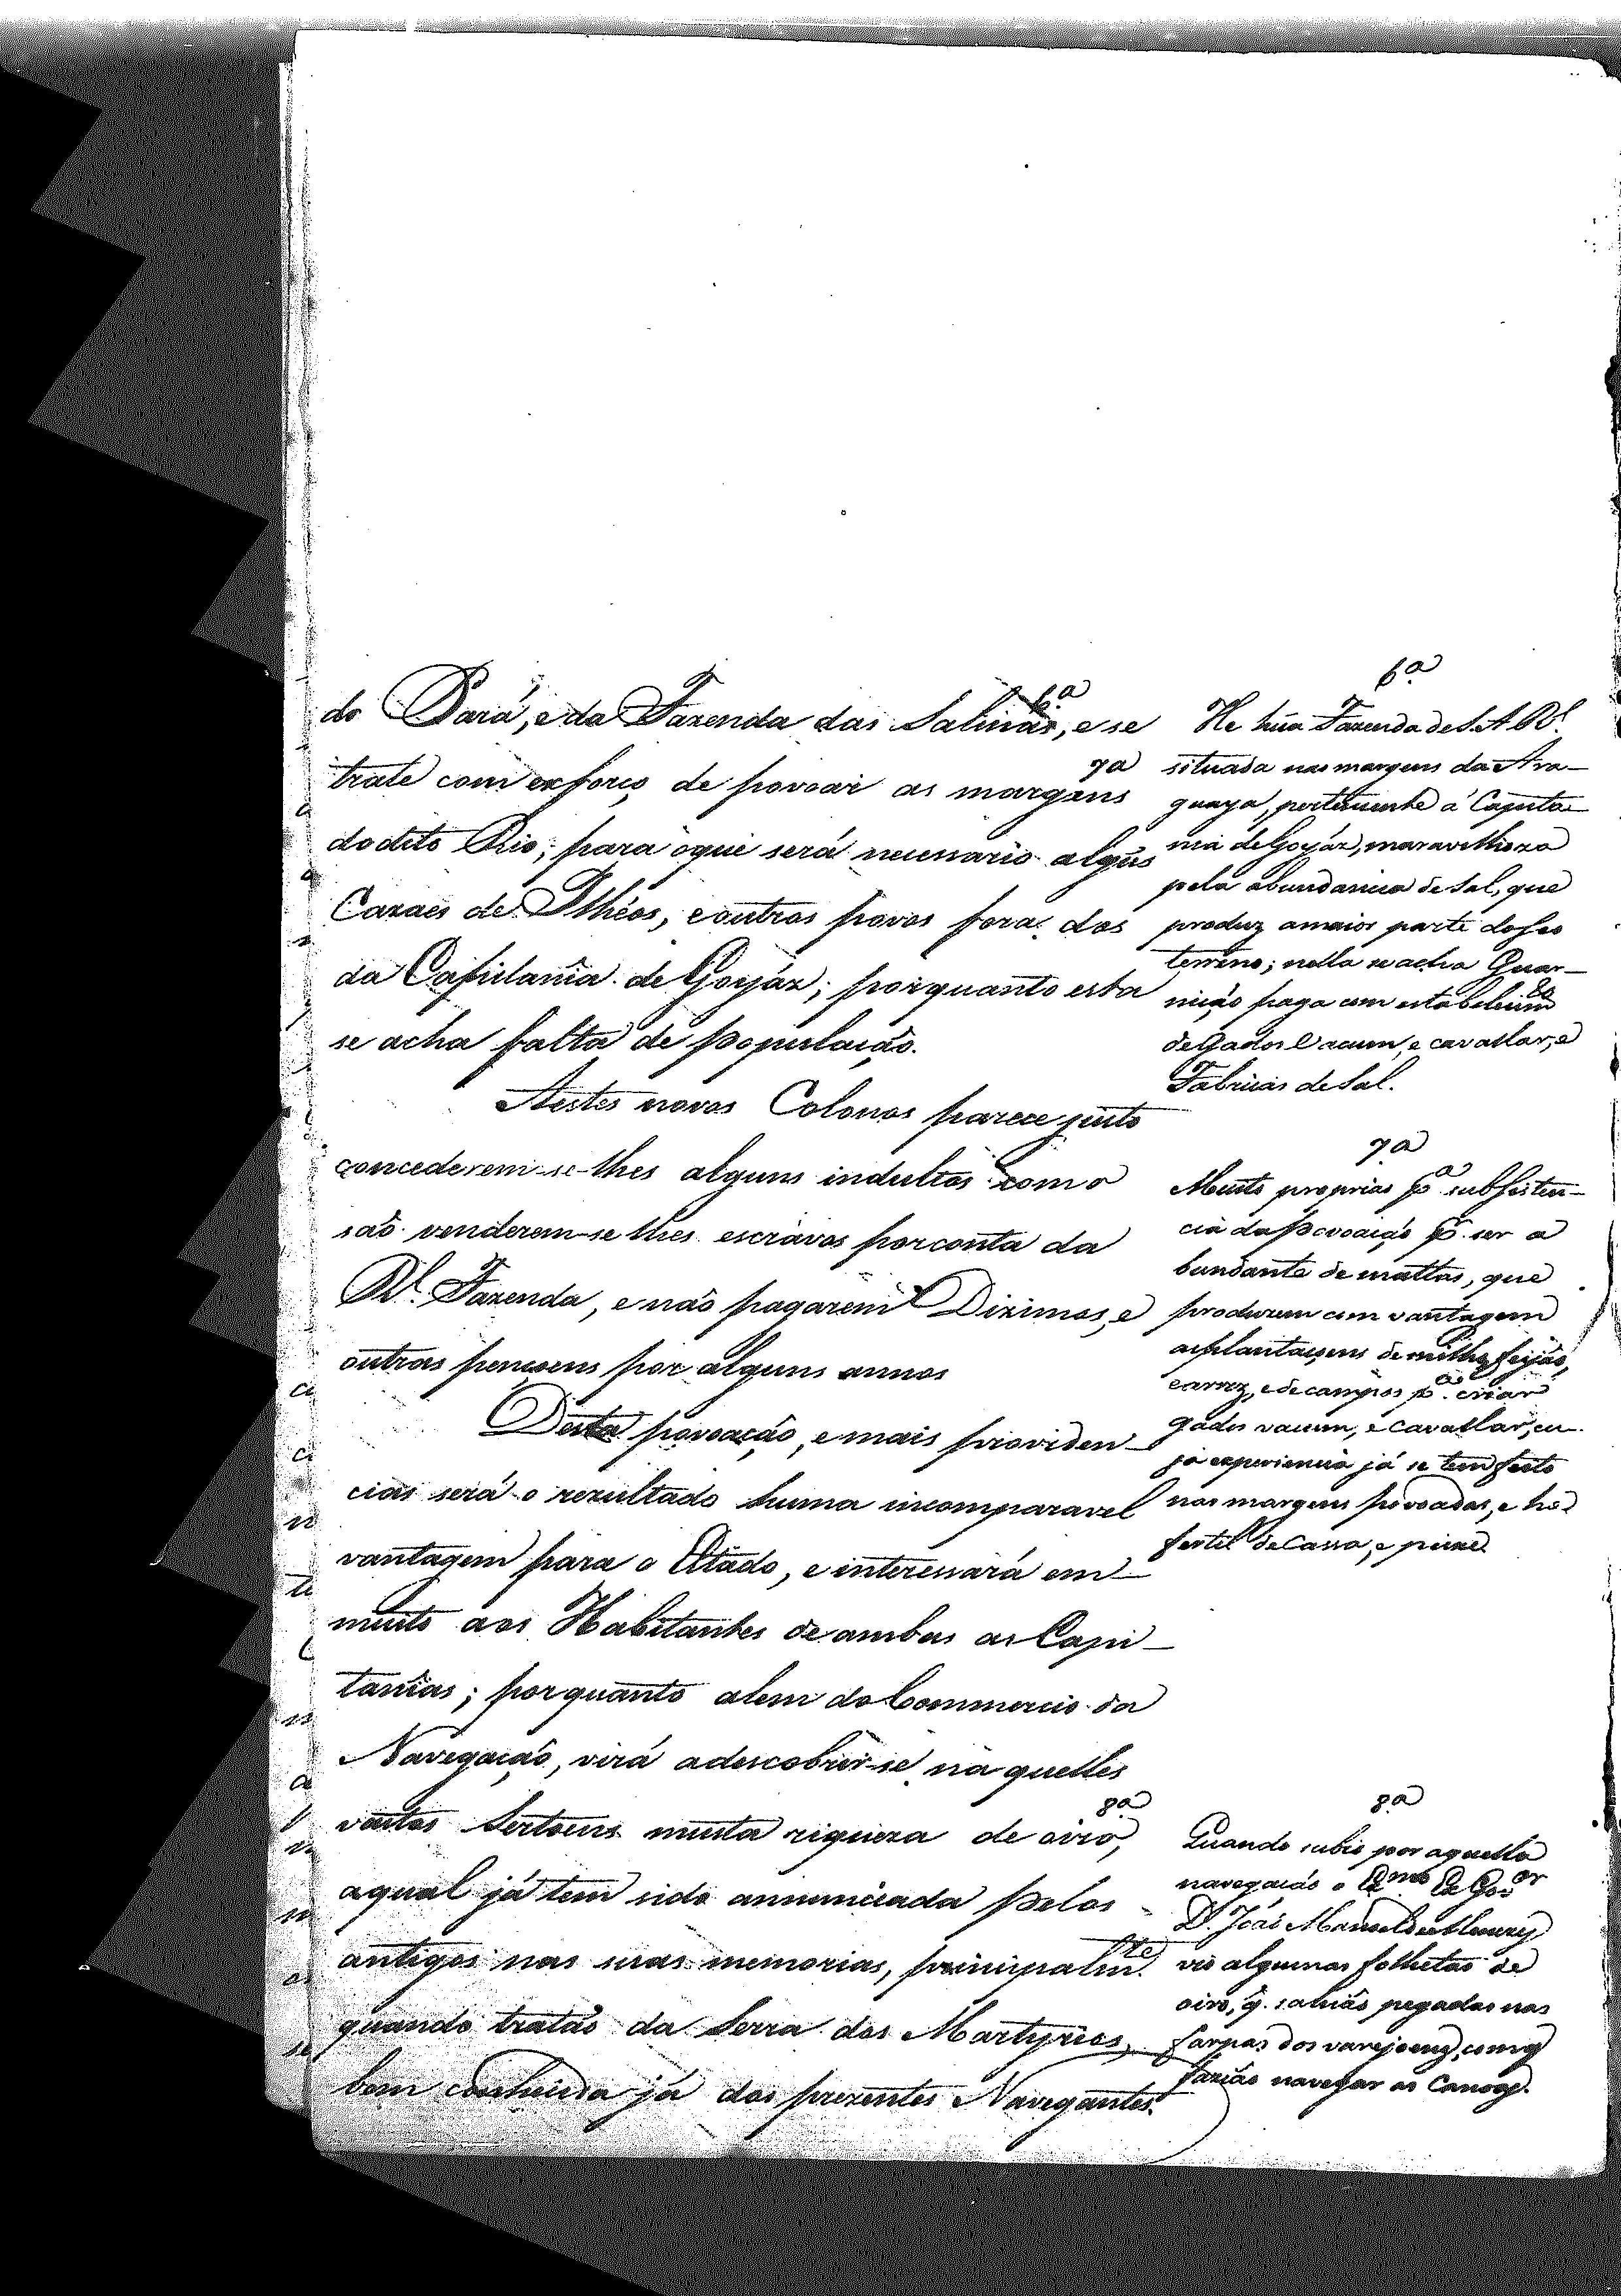 do Pará, e da Fazenda das Salinas, e se
6a
trate com exforço de povoar as margens
7a
do dito Rio; para o que será necessario algũs
Cazaes de Ilhéos, e outros povos fora dos
da Capitania de Goyáz; porquanto esta
se acha falta de população.
Aestes novos Colonos parece justo
concederem-se-lhes alguns indultos como
são venderem-se lhes escravos por conta da
Rl. Fazenda, e não pagarem Dizimos, e
outras pensoens por alguns annos
Desta povoação, e mais providen-
cias será o rezultado huma incomparavel
vantagem para o Estado, e interessará em
muito aos Habitantes de ambas as Capi-
tanias; porquanto alem do Commercio da
Navegação, virá adescobrir-se naquelles
vastos Sertoens muita riqueza de oiro,
8a
aqual já tem sido annunciada pelos
antigos nas suas memorias, principalmte.
quando tratão da Serra dos Martyrios,
bem conhecida já dos prezentes Navegantes.
6a
He hũa Fazenda de S. A. Rl.
situada nas margens da Ara-
guaya, pertencente á Capita-
nia de Goyáz, maravilhoza
pela abundancia de Sal, que
produz amaior parte do seo
terreno; nella se acha Guar-
nição paga com estabelecimto
de Gados Vacum, e cavallar, e
Fabricas de Sal.
7a
Muito proprias pa. subsisten-
cia da Povoação p. ser a
bundante de mattas, que
produzem com vantagem
asplantaçens de milho, feijão,
earroz, e de campos pa. criar
gados vacum, e cavallar, cu-
ja experiencia já se tem feito
nas margens povoadas, e hé
fertil de Cassa, e peixe.
8a
Quando subio por aquella
navegação o Exmo. Sr. Gor.
D. João Manoel de Menezes,
vio algumas folhetas de
oiro, q. sahião pegadas nas
farpas dos varejoens, com q
fazião navegar as Canoas.